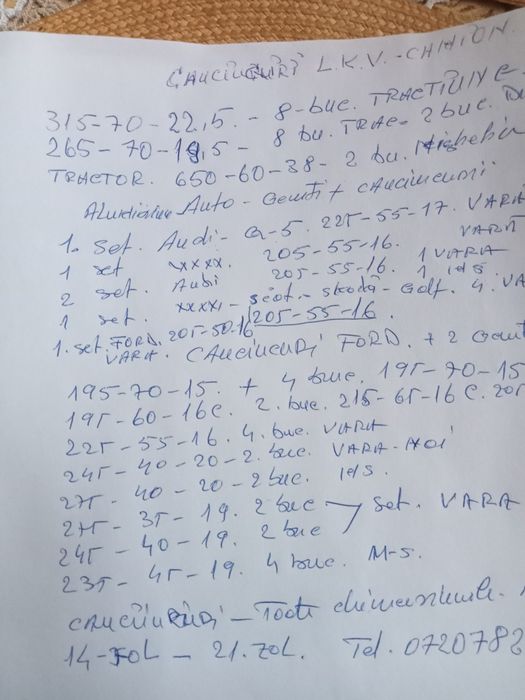 CAUCIUCURI L.K.V. - CAMION.
315-70-22,5. - 8-buc. TRACTIUNE -
265-70-19,5 - 8 bu. TRAC - 2 buc.
TRACTOR. 650-60-38 - 2 bu.
Auto - Genti + CAUCIUCURI
1. set. Audi - Q-5. 225-55-17. VARA
1 set xxxx. 205-55-16. VARA
2 set. Audi 205-55-16. 1 VARA
1 set. xxxx - seat - skoda - Golf. 4. VA
1. set. FORD. 205-50-16 205-55-16.
VARA. CAUCIUCURI FORD. + 2 Genti
195-70-15. + 4 buc. 195-70-15
195-60-16c. 2. buc. 215-65-16 C. 205
225-55-16. 4. buc. VARA
245-40-20-2. buc. VARA-NOI
275-40-20-2 buc. ids.
275-35-19. 2 buc set. VARA
245-40-19. 2 buc
235-45-19. 4 buc. M-S.
CAUCIUCURI - Toate dimensiunile.
14-ZOL - 21. ZOL. Tel. 0720782